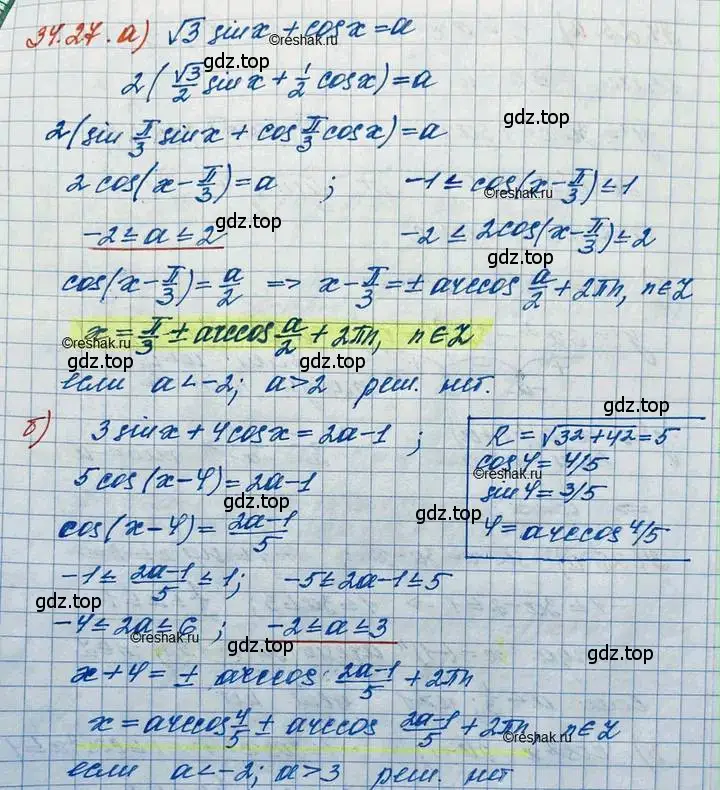 34.27. а) √3 sinx + cosx = a
©reshak.ru
2(√3/2 sinx + 1/2 cosx) = a
gdz.top
2(sin π/3 sinx + cos π/3 cosx) = a
2 cos(x - π/3) = a ; -1 ≤ cos(x - π/3) ≤ 1
©reshak.ru
gdz.top
-2 ≤ a ≤ 2 -2 ≤ 2cos(x - π/3) ≤ 2
gdz.top
cos(x - π/3) = a/2 => x - π/3 = ± arccos a/2 + 2πn, n∈Z
x = π/3 ± arccos a/2 + 2πn, n∈Z
©reshak.ru
gdz.top
если a < -2; a > 2 реш. нет.
gdz.top
б) 3sinx + 4cosx = 2a-1 ; R = √32+42 = 5
5 cos(x - φ) = 2a-1 cosφ = 4/5
sinφ = 3/5
gdz.top
©reshak.ru
cos(x - φ) = 2a-1/5 φ = arccos 4/5
-1 ≤ 2a-1/5 ≤ 1; -5 ≤ 2a-1 ≤ 5
gdz.top
©reshak.ru
-4 ≤ 2a ≤ 6 ; -2 ≤ a ≤ 3
©reshak.ru
gdz.top
x + φ = ± arccos 2a-1/5 + 2πn
x = arccos 4/5 ± arccos 2a-1/5 + 2πn n∈Z
gdz.top
©reshak.ru
если a < -2; a > 3 реш. нет
gdz.top